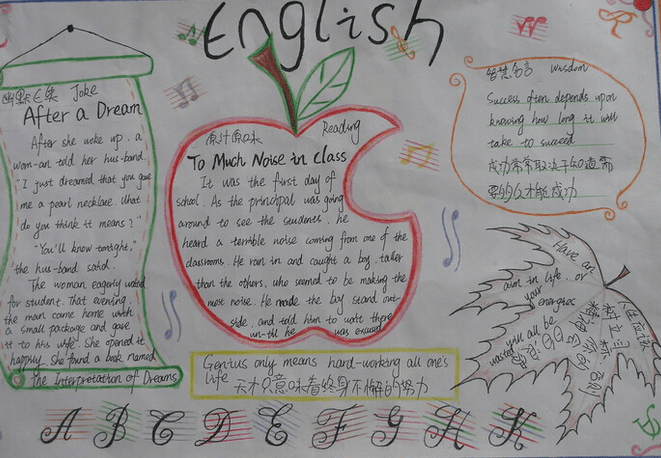 English
幽默一笑 Joke
After a Dream
After she woke up, a
wom-an told her hus-band.
"I just dreamed that you gave
me a pearl necklace. What
do you think it means?"
"You'll know tonight,"
the hus-band said.
The woman eagerly waited
for student. That evening,
the man came home with
a small package and gave
it to his wife. She opened it
happily. She found a book named
The Interpretation of Dreams
原汁原味 Reading
To Much Noise in Class
It was the first day of
school. As the principal was going
around to see the students, he
heard a terrible noise coming from one of the
classrooms. He ran in and caught a boy, taller
than the others, who seemed to be making the
most noise. He made the boy stand out-
side, and told him to wait there
un-til he was excused
Genius only means hard-working all one's
life
天才只意味着终身不懈的努力
智慧名言 wisdom
Success often depends upon
knowing how long it will
take to succeed
成功常常取决于知道需
要多久才能成功
Have an
aim in life, or
your energies
will all be
wasted
人生应该
树立目标
否则你的
精力会
白白
浪费
A B C D E F G H K